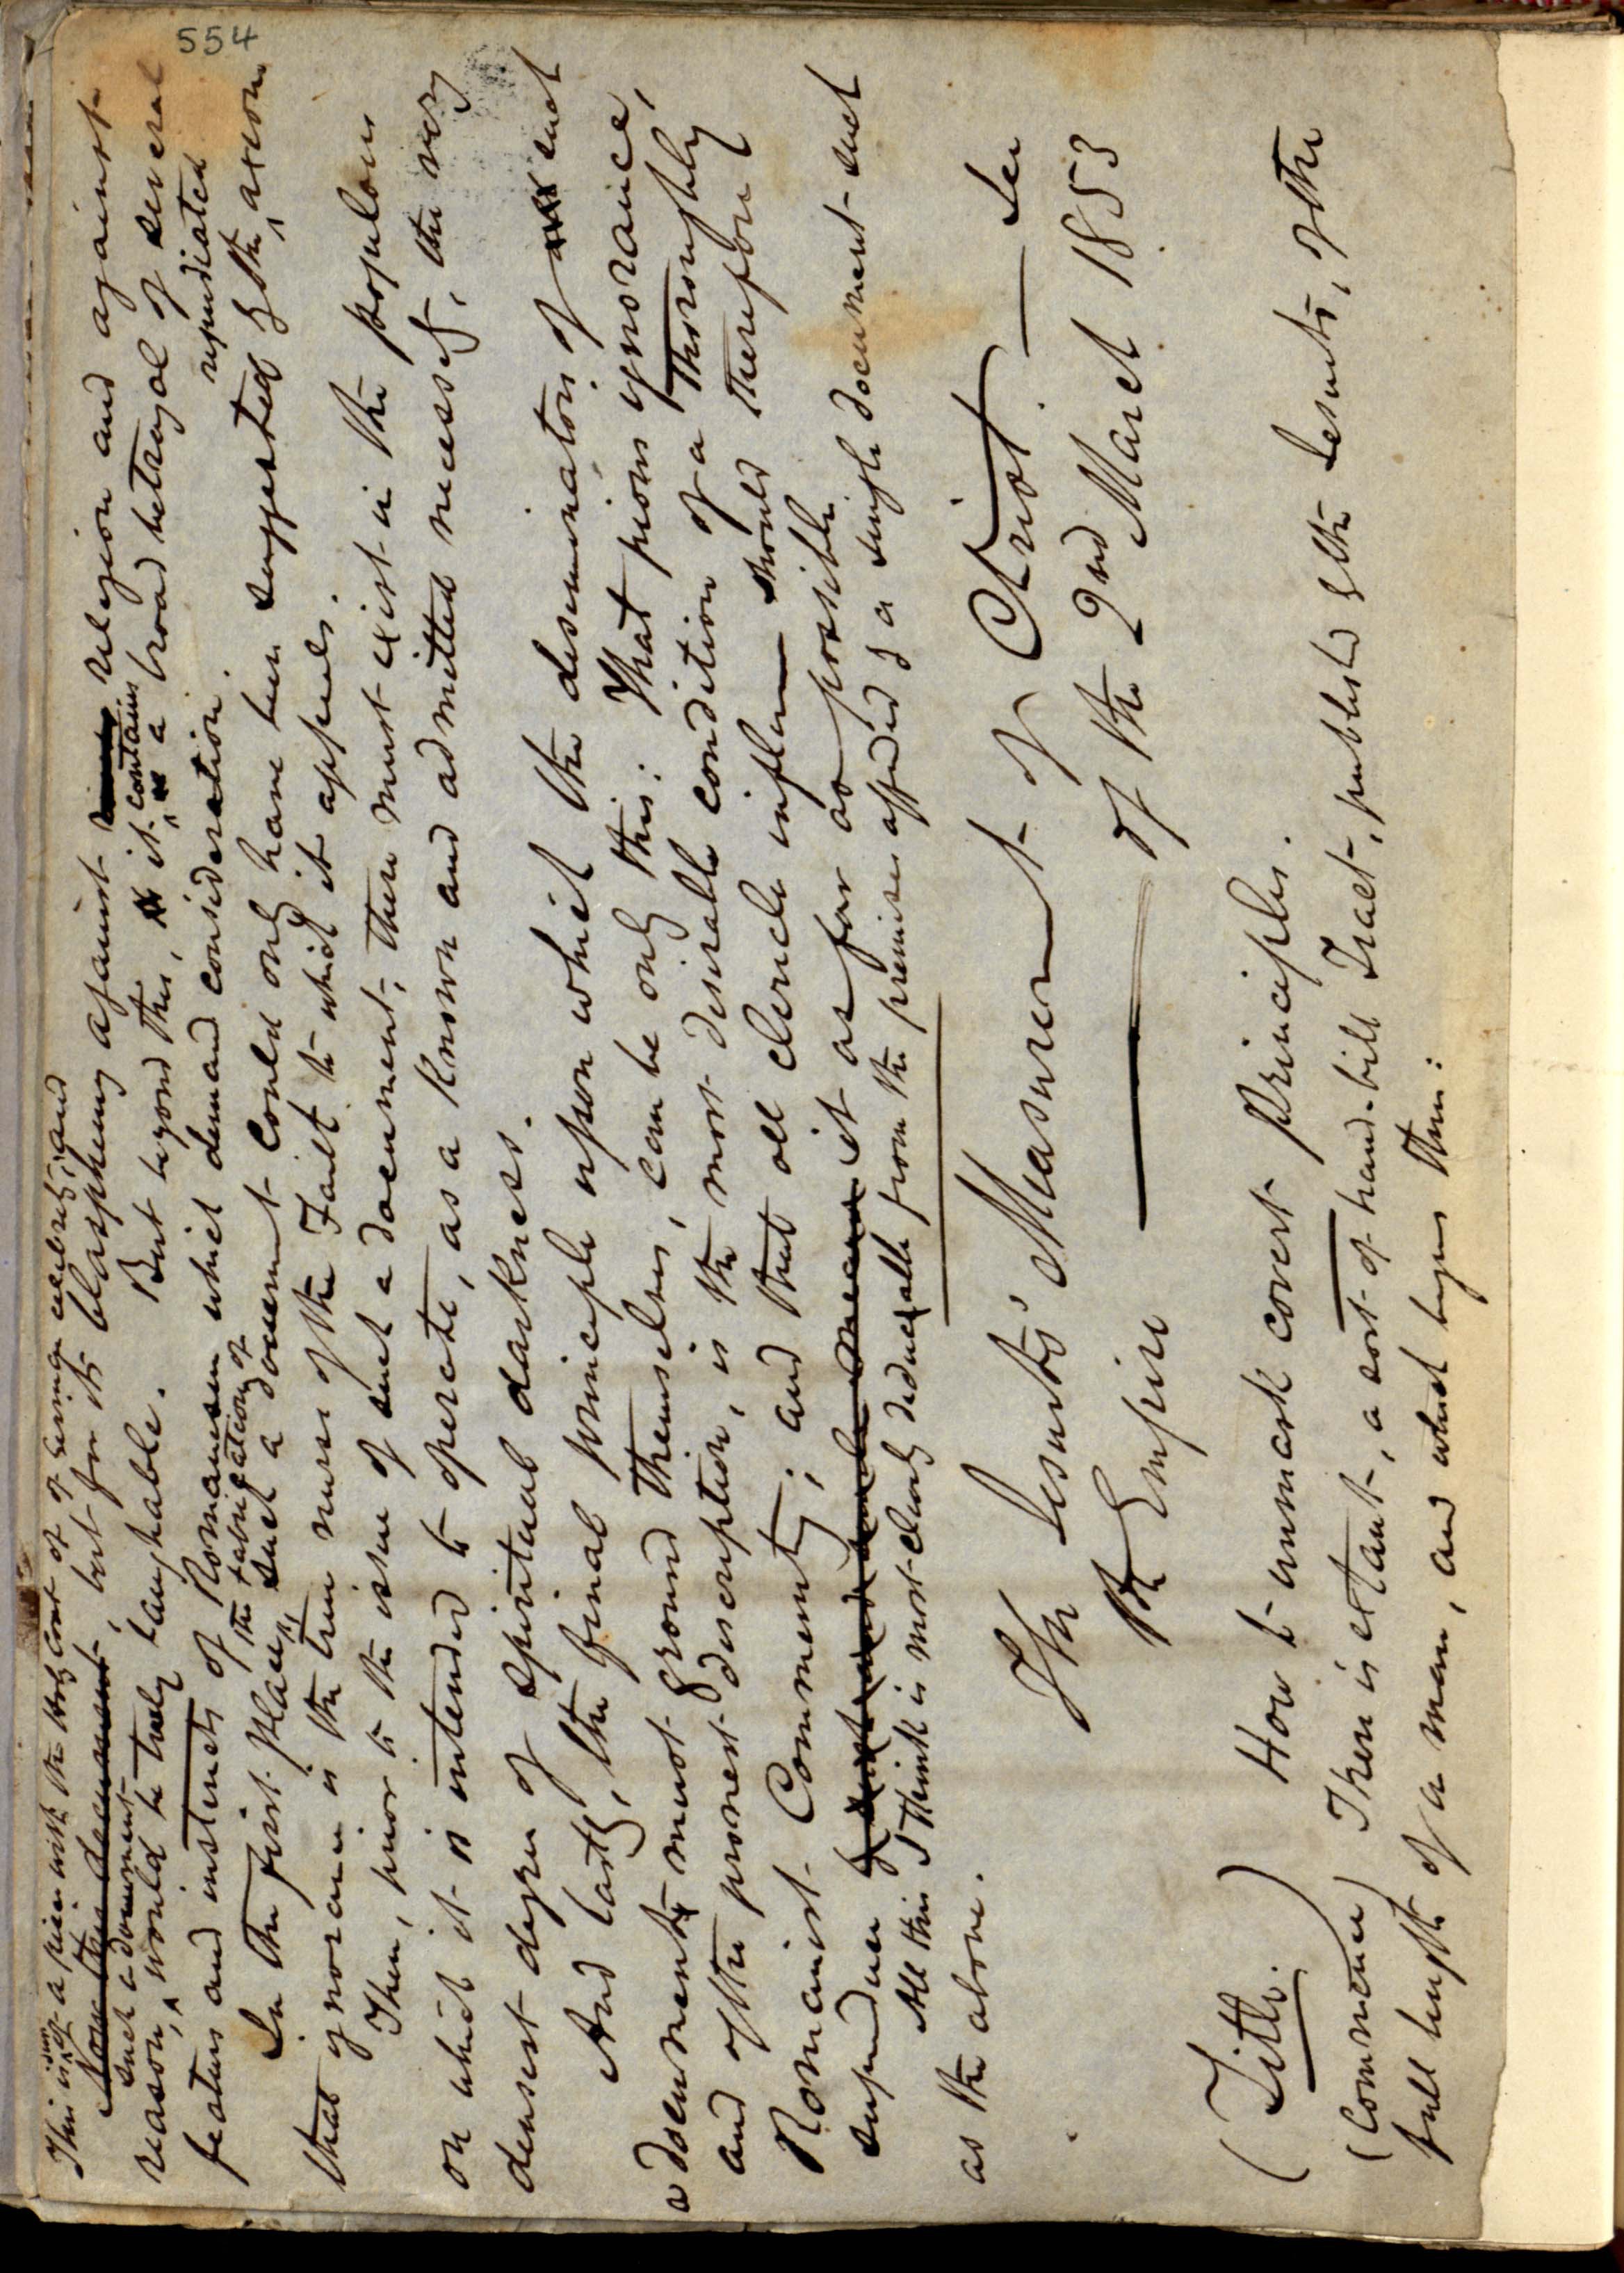 554
This is ism of a piece with the Holy Coat of Treves celebrity, and
Now this document, but for its blasphemy against religion and against
such a document
reason, would be truly laughable. But beyond this, it contains a broad betrayal of several
features and instincts of Romanism which demand consideration.
In the first place, the fabrication of such a document could only have been suggested by the repudiated axiom
that ignorance is the true nurse of the Faith to which it appeals.
Then, prior to the issue of such a document, there must exist in the populous
on which it is intended to operate, as a known and admitted necessity, the very
densest degree of spiritual darkness.
And lastly, the final principle upon which the disseminators of such
a document must ground themselves, can be only this: That pious ignorance,
and of the purest description, is the most desirable condition of a thoroughly
Romanist Community; and that all clerical influence should therefore
superduce it as far as possible
All this I think is most clearly deduceable from the premises afforded by a single document such
as the above.
The Jesuits' Measurement of Christ. — See
the Empire — of the 2nd March 1853
(Title.) How to unmask covert principles.
(Commence) There is extant, a sort-of-hand-bill Tract, published by the Jesuits, of the
full length of a man, and which begins thus: